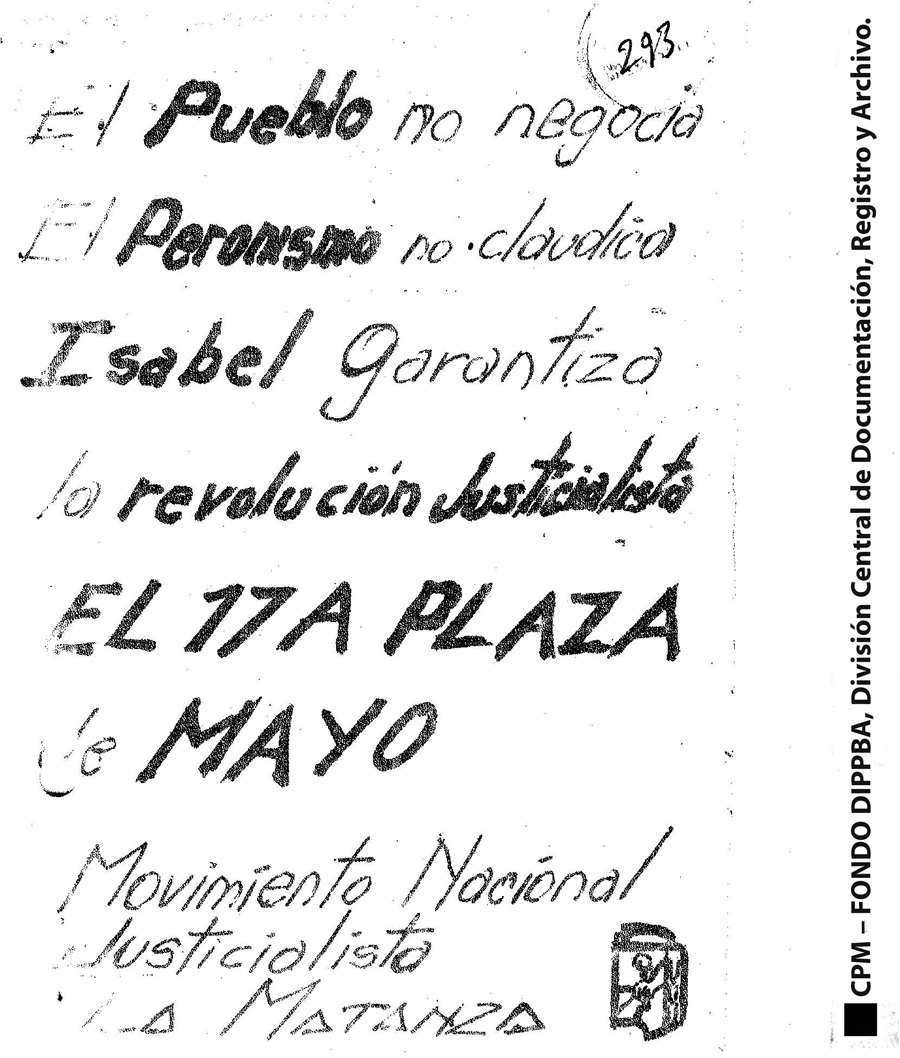 293
El Pueblo no negocia
El Peronismo no claudica
Isabel garantiza
la revolución Justicialista
EL 17 A PLAZA
de MAYO
Movimiento Nacional
Justicialista
LA MATANZA
CPM – FONDO DIPPBA, División Central de Documentación, Registro y Archivo.